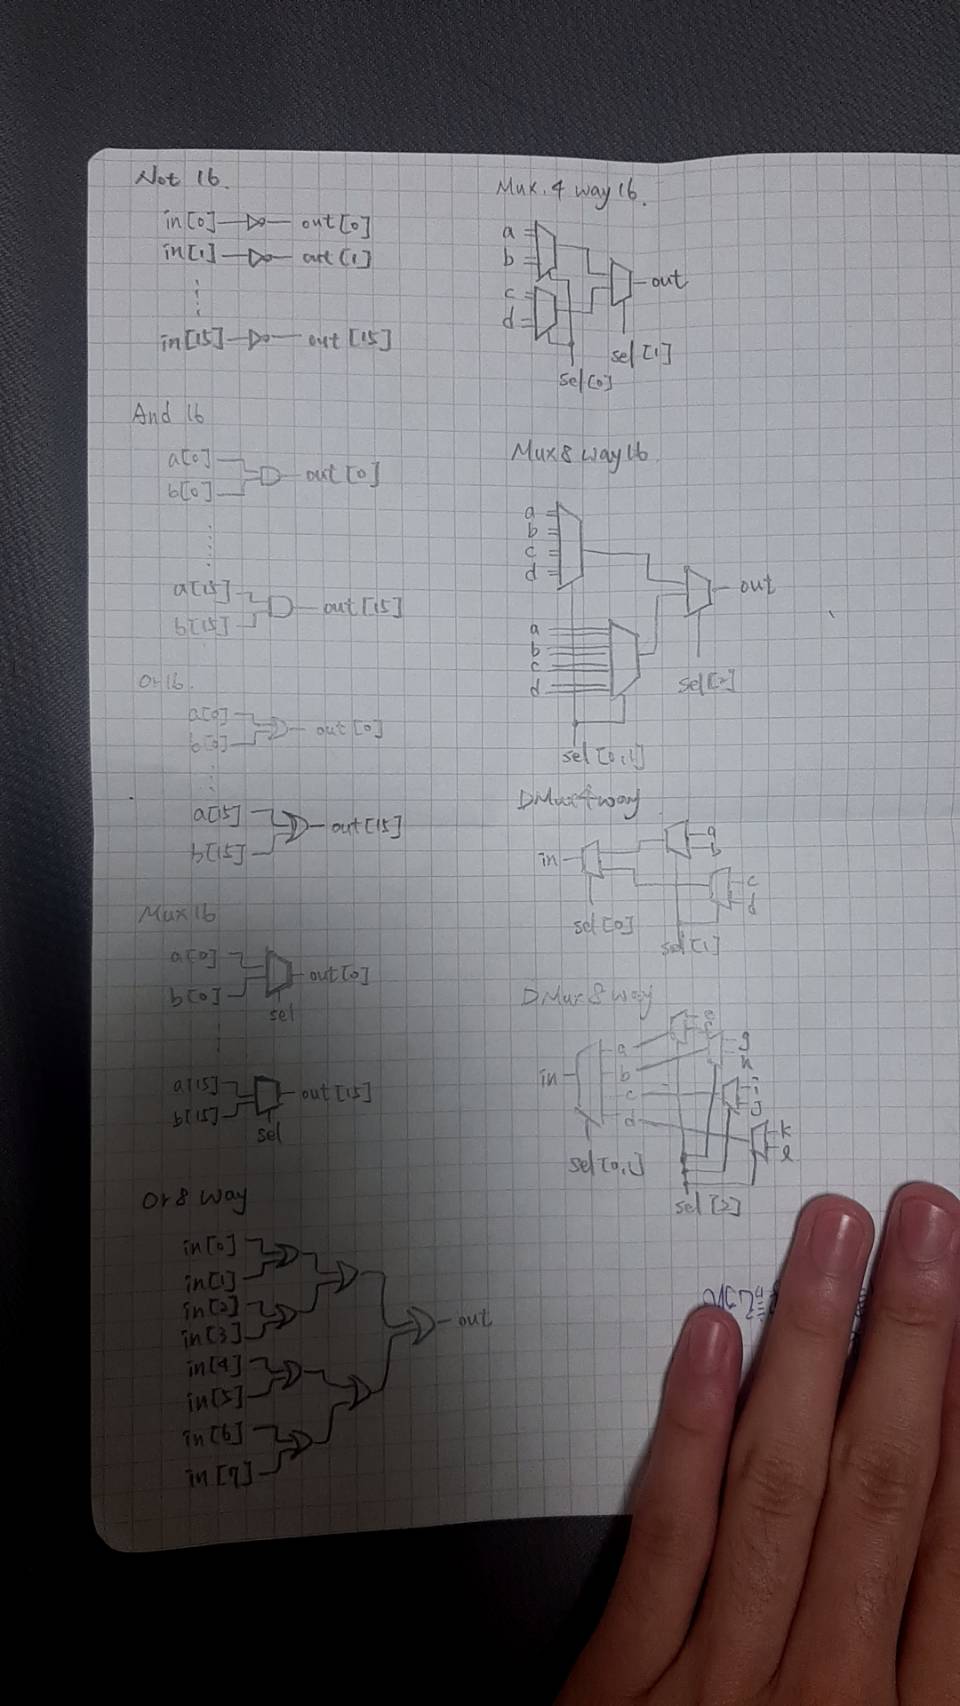 Not 16.
in[0] out[0]
in[1] out[1]
in[15] out[15]
And 16
a[0]
b[0]
out[0]
a[15]
b[15]
out[15]
Or 16.
a[0]
b[0]
out[0]
a[15]
b[15]
out[15]
Mux 16
a[0]
b[0]
out[0]
sel
a[15]
b[15]
out[15]
sel
Or 8 Way
in[0]
in[1]
in[2]
in[3]
in[4]
in[5]
in[6]
in[7]
out
Mux.4 way 16.
a
b
c
d
out
sel[1]
sel[0]
Mux 8 way 16
a
b
c
d
out
a
b
c
d
sel[2]
sel[0,1]
DMux 4 way
in
a
b
c
d
sel[0]
sel[1]
DMux 8 way
in
a
b
c
d
e
f
g
h
i
j
k
l
sel[0,1]
sel[2]